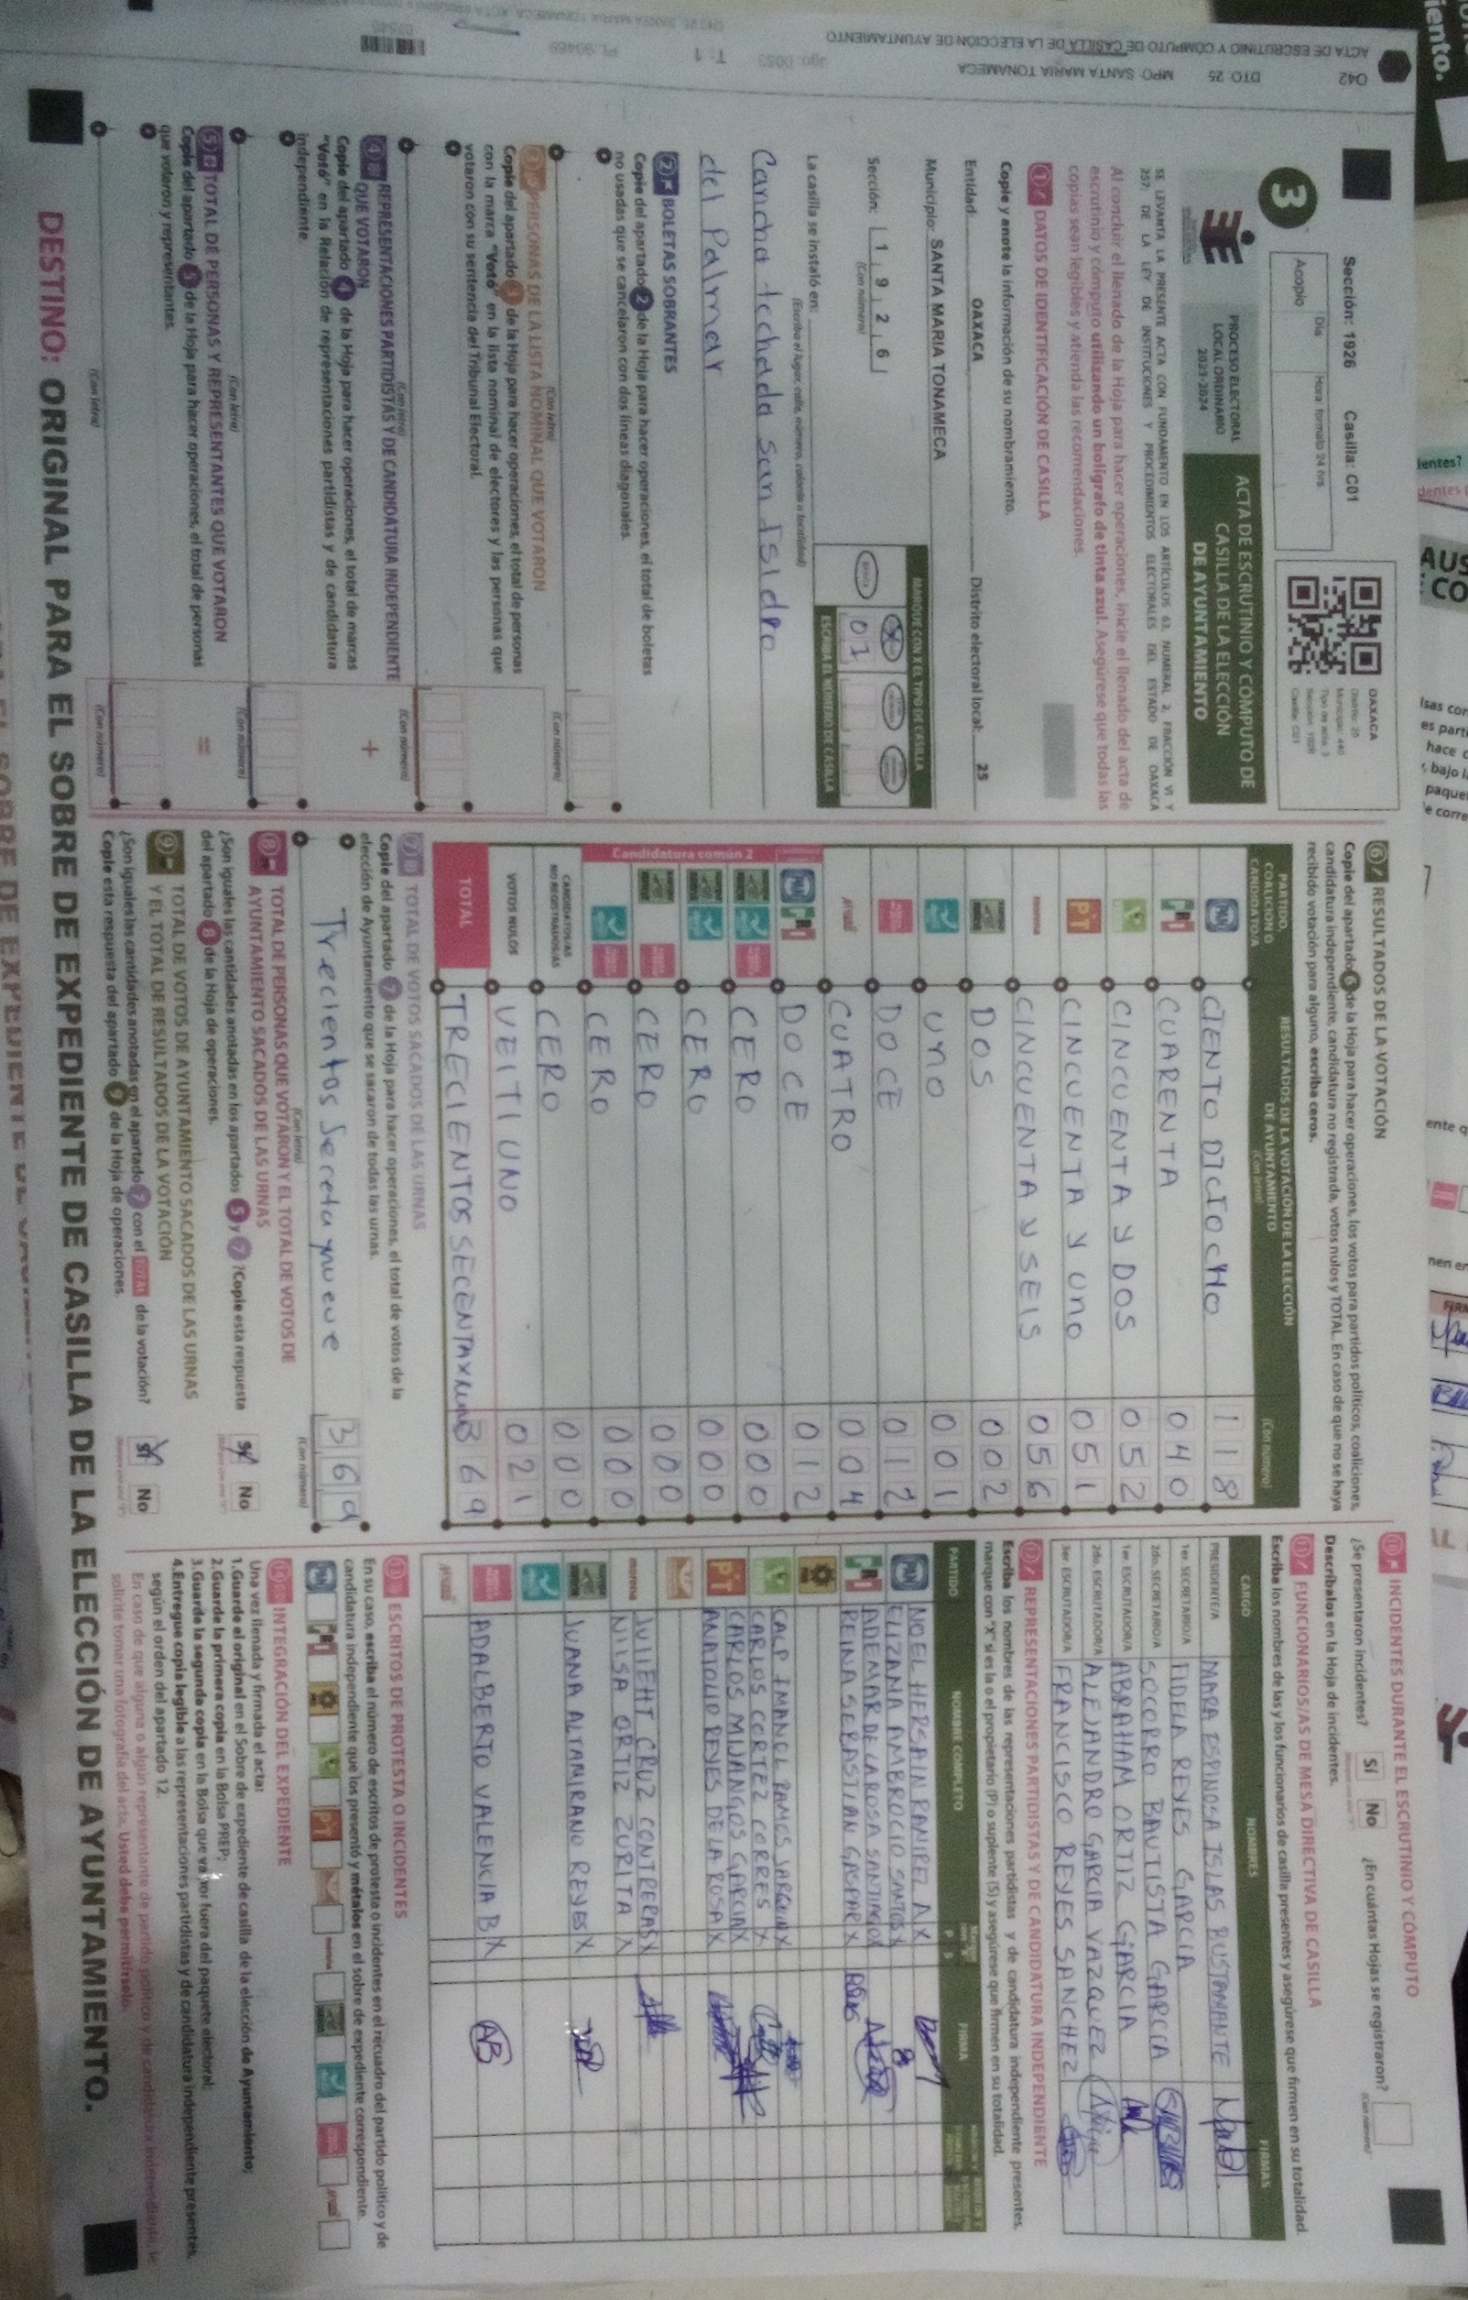 042 DTO. 25 MPO. SANTA MARIA TONAMECA
ACTA DE ESCRUTINIO Y CÓMPUTO DE CASILLA DE LA ELECCIÓN DE AYUNTAMIENTO
Sección: 1926 Casilla: C01
Acopio
Día
Hora formato 24 hrs
OAXACA
3
PROCESO ELECTORAL
LOCAL ORDINARIO
2023-2024
ACTA DE ESCRUTINIO Y CÓMPUTO DE
CASILLA DE LA ELECCIÓN
DE AYUNTAMIENTO
SE LEVANTA LA PRESENTE ACTA CON FUNDAMENTO EN LOS ARTÍCULOS 63, NUMERAL 2, FRACCIÓN VI Y
257; DE LA LEY DE INSTITUCIONES Y PROCEDIMIENTOS ELECTORALES DEL ESTADO DE OAXACA
Al concluir el llenado de la Hoja para hacer operaciones, inicie el llenado del acta de
escrutinio y cómputo utilizando un bolígrafo de tinta azul. Asegúrese que todas las
copias sean legibles y atienda las recomendaciones.
1 DATOS DE IDENTIFICACIÓN DE CASILLA
Copie y anote la información de su nombramiento.
Entidad: OAXACA Distrito electoral local: 25
Municipio: SANTA MARIA TONAMECA
Sección: 1 9 2 6
(Con número)
MARQUE CON X EL TIPO DE CASILLA
01
ESCRIBA EL NÚMERO DE CASILLA
La casilla se instaló en:
(Escriba el lugar, calle, número, colonia o localidad)
Cancha techada san Isidro
del Palmar
2 BOLETAS SOBRANTES
Copie del apartado 2 de la Hoja para hacer operaciones, el total de boletas
no usadas que se cancelaron con dos líneas diagonales.
(Con letra) (Con número)
3 PERSONAS DE LA LISTA NOMINAL QUE VOTARON
Copie del apartado 3 de la Hoja para hacer operaciones, el total de personas
con la marca "Votó" en la lista nominal de electores y las personas que
votaron con su sentencia del Tribunal Electoral.
(Con letra) (Con número)
4 REPRESENTACIONES PARTIDISTAS Y DE CANDIDATURA INDEPENDIENTE
QUE VOTARON
Copie del apartado 4 de la Hoja para hacer operaciones, el total de marcas
"Votó" en la Relación de representaciones partidistas y de candidatura
independiente.
+
(Con letra) (Con número)
5 TOTAL DE PERSONAS Y REPRESENTANTES QUE VOTARON
Copie del apartado 5 de la Hoja para hacer operaciones, el total de personas
que votaron y representantes.
=
(Con letra) (Con número)
6 RESULTADOS DE LA VOTACIÓN
Copie del apartado 6 de la Hoja para hacer operaciones, los votos para partidos políticos, coaliciones,
candidatura independiente, candidatura no registrada, votos nulos y TOTAL. En caso de que no se haya
recibido votación para alguno, escriba ceros.
PARTIDO,
COALICIÓN O
CANDIDATO/A
RESULTADOS DE LA VOTACIÓN DE LA ELECCIÓN
DE AYUNTAMIENTO
(Con letra) (Con número)
PAN CIENTO DICIOCHO 118
PRI CUARENTA 040
CINCUENTA Y DOS 052
PT CINCUENTA Y Uno 051
morena CINCUENTA Y SEIS 056
DOS 002
uno 001
DOCE 012
CUATRO 004
PAN PRI DOCE 012
Candidatura común 2
CERO 000
CERO 000
CERO 000
CERO 000
CANDIDATOS/AS
NO REGISTRADOS/AS CERO 000
VOTOS NULOS VEITIUNO 021
TOTAL TRECIENTOS SECENTAYNUE 369
7 TOTAL DE VOTOS SACADOS DE LAS URNAS
Copie del apartado 7 de la Hoja para hacer operaciones, el total de votos de la
elección de Ayuntamiento que se sacaron de todas las urnas.
Trecientos Secretaynueve 369
(Con letra) (Con número)
8 TOTAL DE PERSONAS QUE VOTARON Y EL TOTAL DE VOTOS DE
AYUNTAMIENTO SACADOS DE LAS URNAS
¿Son iguales las cantidades anotadas en los apartados 5 y 7? Copie esta respuesta
del apartado 8 de la Hoja de operaciones.
SÍ No
9 TOTAL DE VOTOS DE AYUNTAMIENTO SACADOS DE LAS URNAS
Y EL TOTAL DE RESULTADOS DE LA VOTACIÓN
¿Son iguales las cantidades anotadas en el apartado 7 con el TOTAL de la votación?
Copie esta respuesta del apartado 9 de la Hoja de operaciones.
SÍ No
10 INCIDENTES DURANTE EL ESCRUTINIO Y CÓMPUTO
¿Se presentaron incidentes? SÍ No ¿En cuántas Hojas se registraron?
Descríbalos en la Hoja de incidentes.
11 FUNCIONARIOS/AS DE MESA DIRECTIVA DE CASILLA
Escriba los nombres de las y los funcionarios de casilla presentes y asegúrese que firmen en su totalidad.
CARGO NOMBRES FIRMAS
PRESIDENTE/A MARA ESPINOSA ISLAS BUSTAMANTE
1er. SECRETARIO/A FIDELA REYES GARCIA
2do. SECRETARIO/A SOCORRO BAUTISTA GARCIA
1er. ESCRUTADOR/A ABRAHAM ORTIZ GARCIA
2do. ESCRUTADOR/A ALEJANDRO GARCIA VAZQUEZ
3er. ESCRUTADOR/A FRANCISCO REYES SANCHEZ
12 REPRESENTACIONES PARTIDISTAS Y DE CANDIDATURA INDEPENDIENTE
Escriba los nombres de las representaciones partidistas y de candidatura independiente presentes,
marque con "X" si es la o el propietario (P) o suplente (S) y asegúrese que firmen en su totalidad.
PARTIDO NOMBRE COMPLETO FIRMA
NOEL HERSAIN RAMIREZ A X
ELIZANA AMBROCIO SANTOS X
ADEMAR DE LA ROSA SANTIAGO X
REINA SEBASTIAN GASPAR X
CARLOS CORTEZ CORRES X
CARLOS MIJANGOS GARCIA X
ANATOLIO REYES DE LA ROSA X
JULIEHT CRUZ CONTRERAS X
NILSA ORTIZ ZURITA X
JUANA ALTAMIRANO REYES X
ADALBERTO VALENCIA B X AB
13 ESCRITOS DE PROTESTA O INCIDENTES
En su caso, escriba el número de escritos de protesta o incidentes en el recuadro del partido político y de
candidatura independiente que los presentó y métalos en el sobre de expediente correspondiente.
14 INTEGRACIÓN DEL EXPEDIENTE
Una vez llenada y firmada el acta:
1.Guarde el original en el Sobre de expediente de casilla de la elección de Ayuntamiento;
2.Guarde la primera copia en la Bolsa PREP;
3.Guarde la segunda copia en la Bolsa que va por fuera del paquete electoral;
4.Entregue copia legible a las representaciones partidistas y de candidatura independiente presentes,
según el orden del apartado 12.
En caso de que alguna o algún representante de partido político y de candidatura independiente, le
solicite tomar una fotografía del acta, Usted debe permitírselo.
DESTINO: ORIGINAL PARA EL SOBRE DE EXPEDIENTE DE CASILLA DE LA ELECCIÓN DE AYUNTAMIENTO.